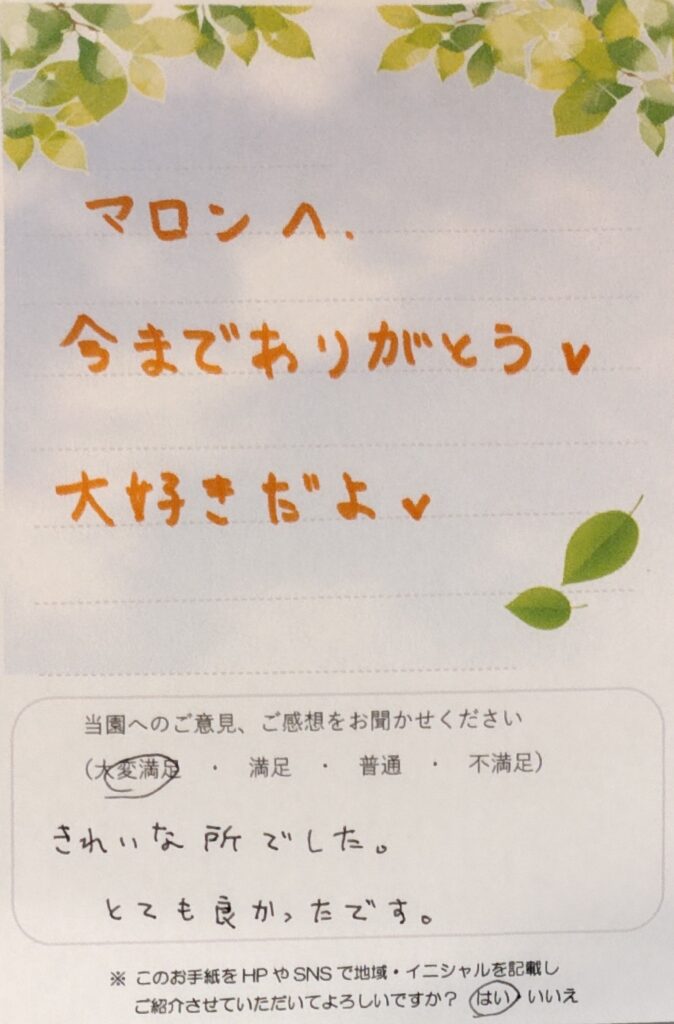 マロンへ.
今までありがとう♥
大好きだよ♥
当園へのご意見、ご感想をお聞かせください
(大変満足 ・ 満足 ・ 普通 ・ 不満足)
きれいな所でした。
とても良かったです。
※ このお手紙をHPやSNSで地域・イニシャルを記載し
ご紹介させていただいてよろしいですか? はい・いいえ